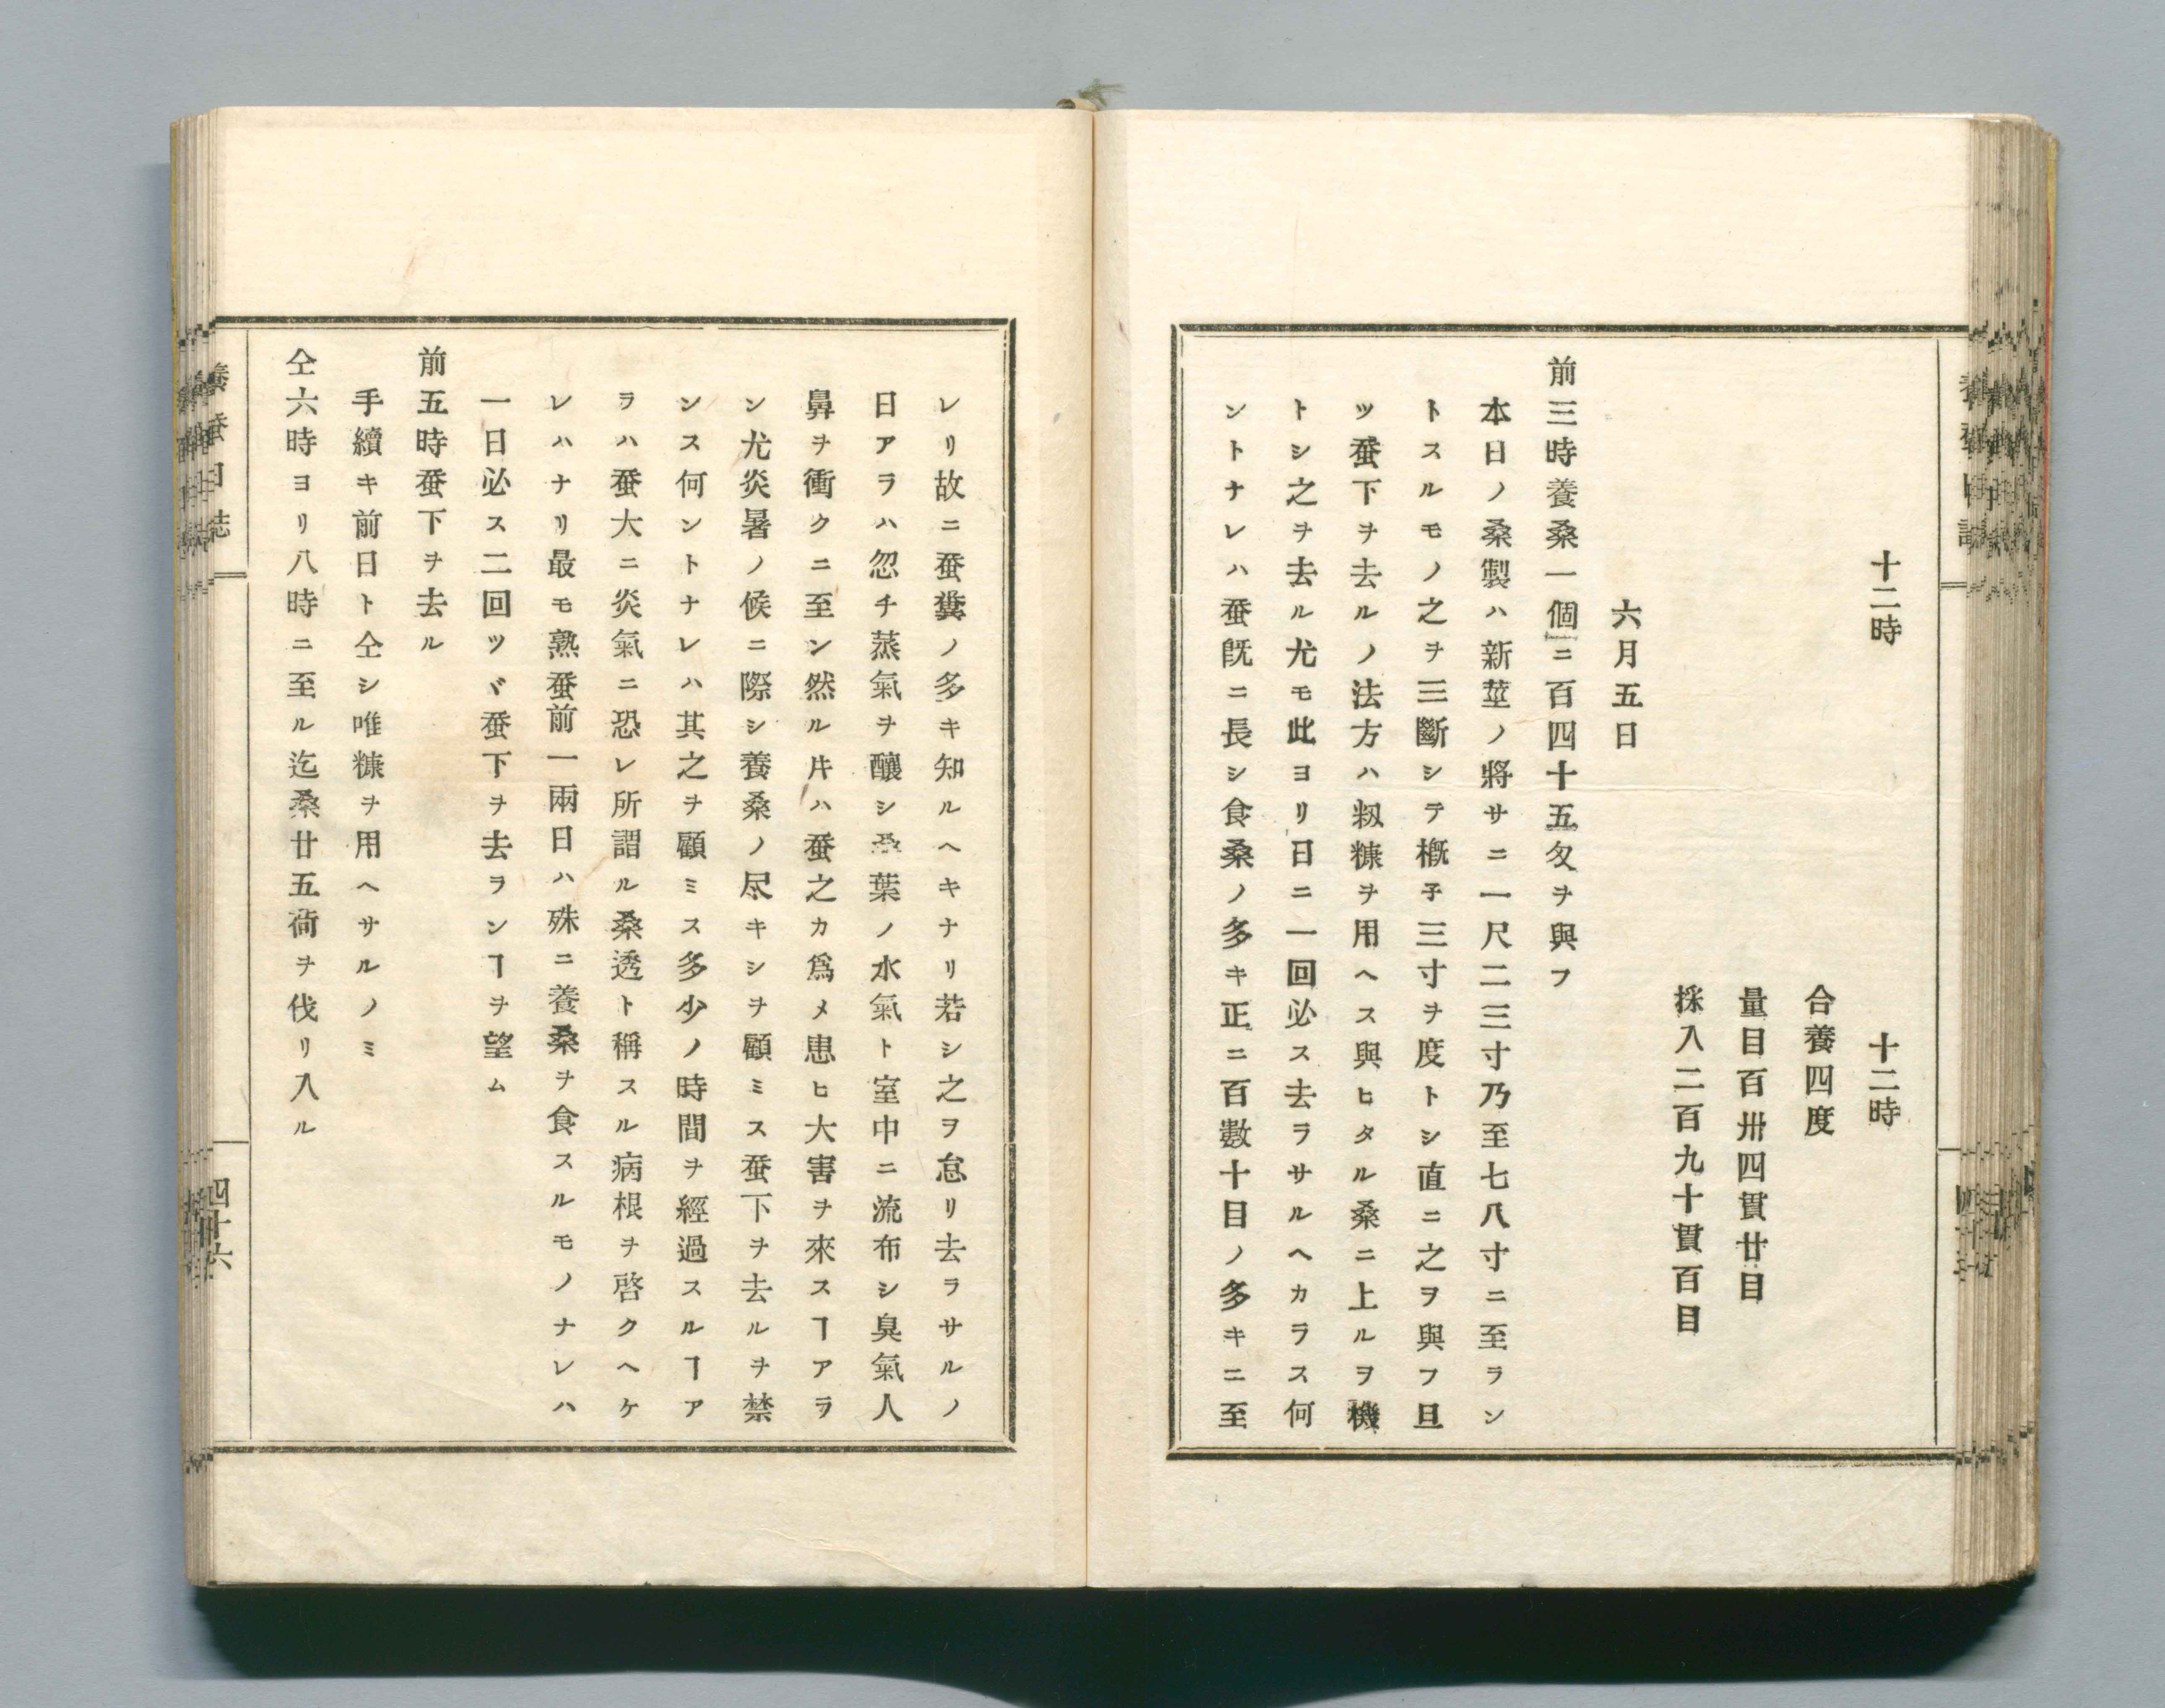 十二時　十二時
合養四度
量目百卅四貫廿目
採入二百九十貫百目
六月五日
前三時養桑一個ニ百四十五匁ヲ與フ
本日ノ桑製ハ新莖ノ將サニ一尺二三寸乃至七八寸ニ至ラン
トスルモノ之ヲ三斷シテ槪子三寸ヲ度トシ直ニ之ヲ與フ且
ツ蚕下ヲ去ルノ法方ハ籾糠ヲ用ヘス與ヒタル桑ニ上ルヲ機
トシ之ヲ去ル尤モ此ヨリ日ニ一回必ス去ラサルヘカラス何
ントナレハ蚕既ニ長シ食桑ノ多キ正ニ百數十目ノ多キニ至
レリ故ニ蚕糞ノ多キ知ルヘキナリ若シ之ヲ怠リ去ラサルノ
日アラハ忽チ蒸氣ヲ釀シ桑葉ノ水氣ト室中ニ流布シ臭氣人
鼻ヲ衝クニ至ン然ル片ハ蚕之カ爲メ患ヒ大害ヲ來スヿアラ
ン尤炎暑ノ候ニ際シ養桑ノ尽キシヲ顧ミス蚕下ヲ去ルヲ禁
ンス何ントナレハ其之ヲ顧ミス多少ノ時間ヲ經過スルヿア
ラハ蚕大ニ炎氣ニ恐レ所謂ル桑透ト稱スル病根ヲ啓クヘケ
レハナリ最モ熟蚕前一兩日ハ殊ニ養桑ヲ食スルモノナレハ
一日必ス二回ツヾ蚕下ヲ去ランヿヲ望ム
前五時蚕下ヲ去ル
手續キ前日ト仝シ唯糠ヲ用ヘサルノミ
仝六時ヨリ八時ニ至ル迄桑廿五荷ヲ伐リ入ル
養蚕日誌
四十六